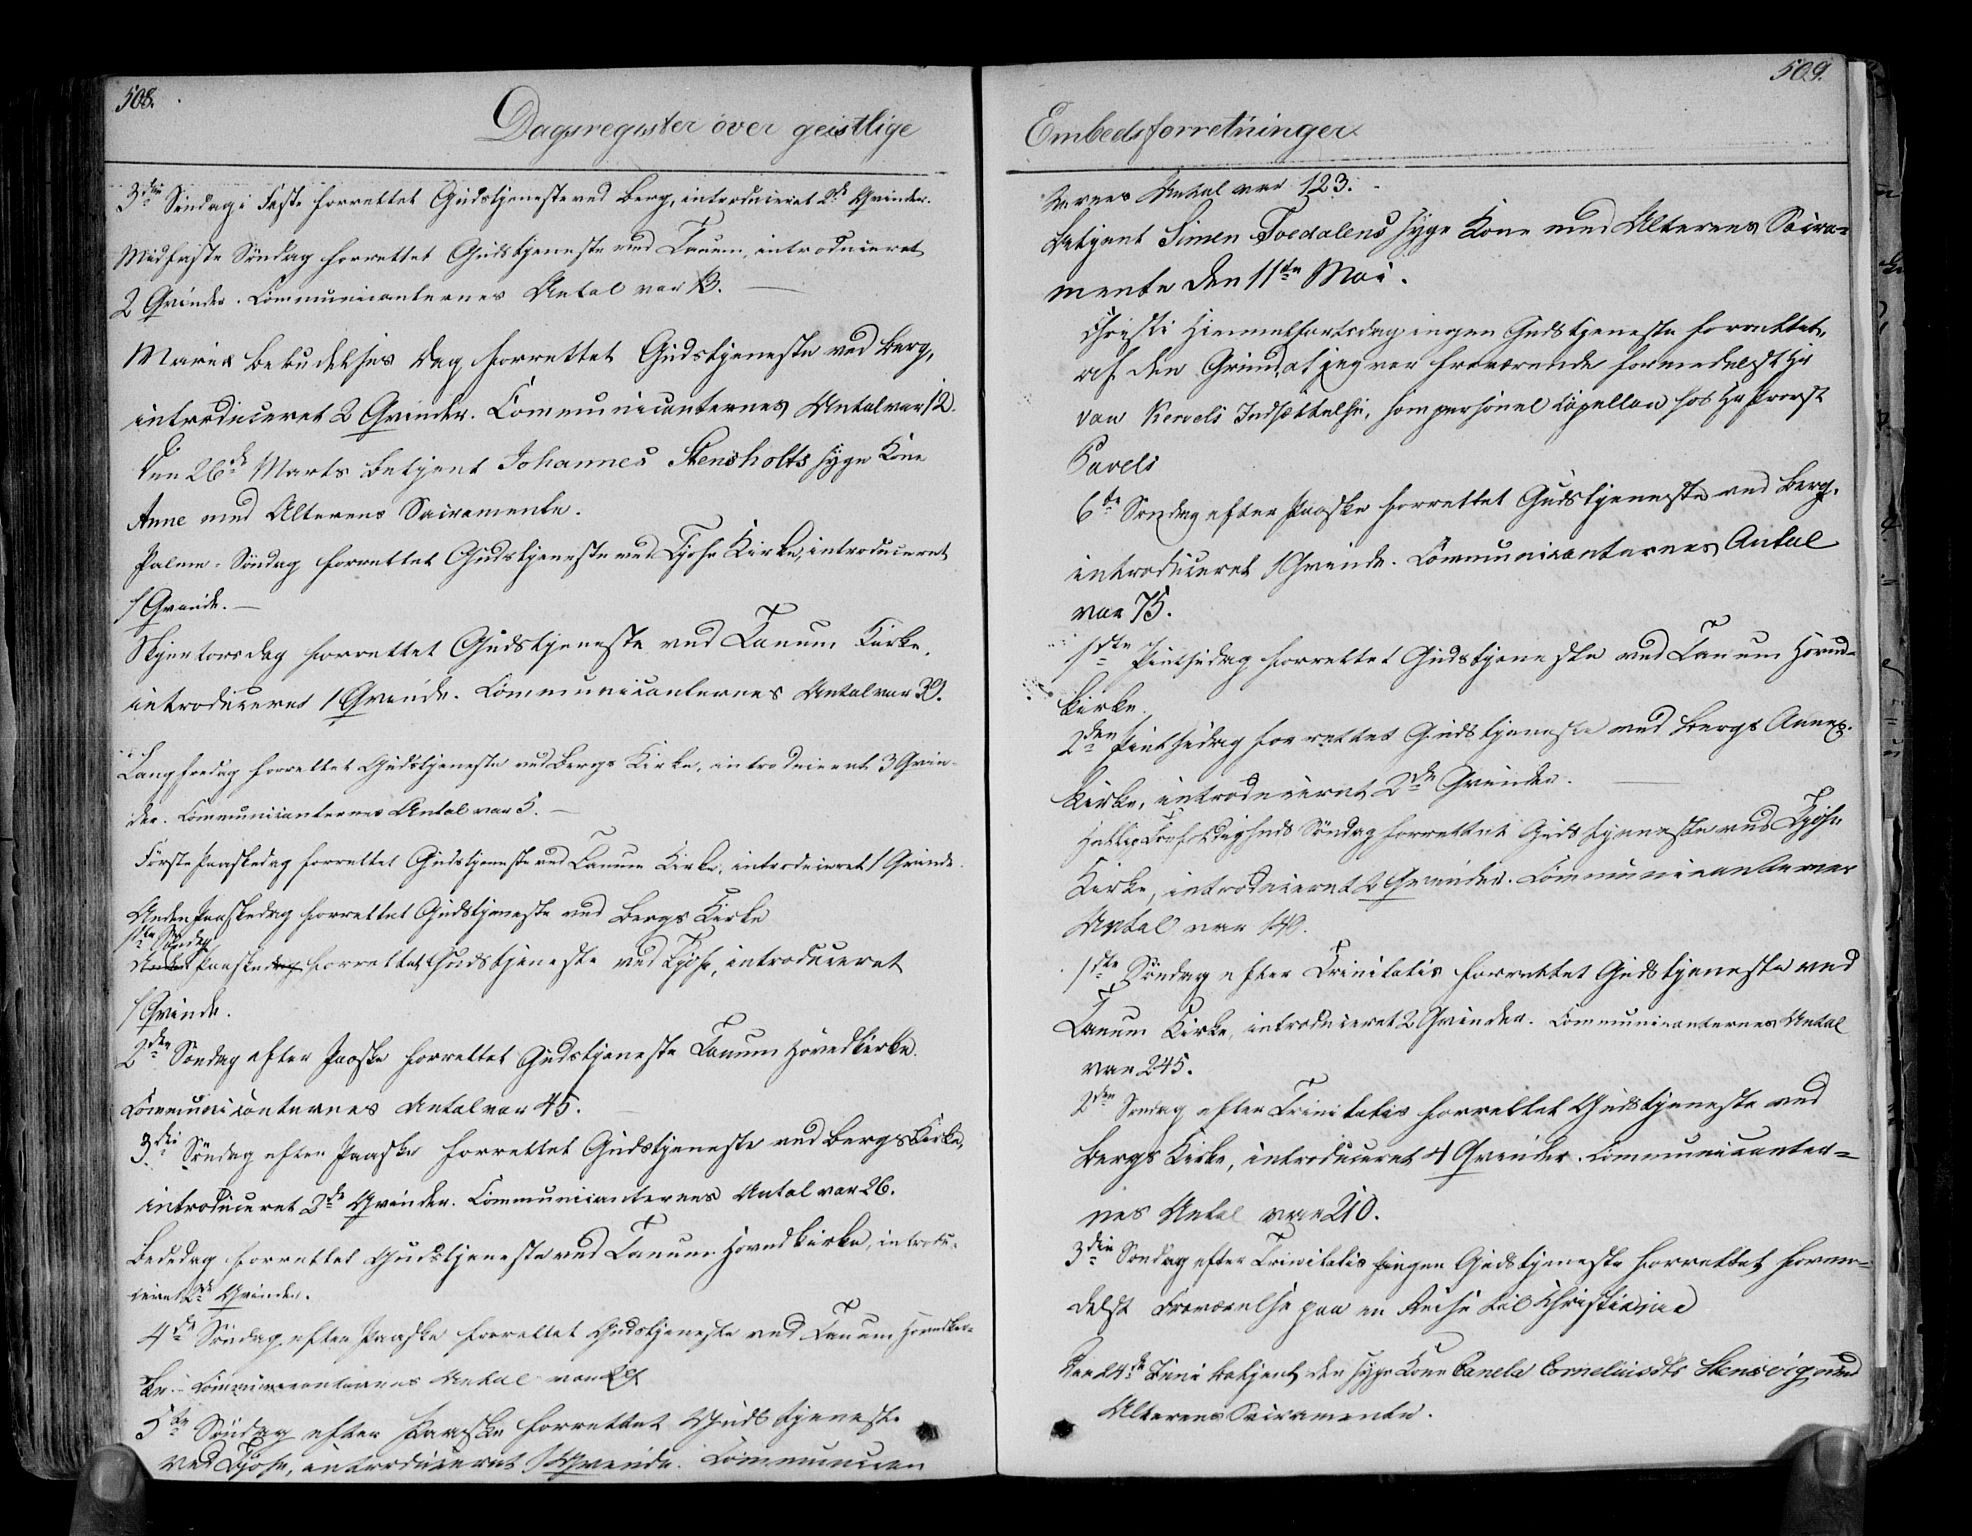 508.
Dagsregister over geistlige
3die Søndag i Faste forrettet Gudstjeneste ved Berg, introduceret 2de Qvinder.
Midfaste Søndag forrettet Gudstjeneste ved Tanum, introduceret
2 Qvinder. Communicanternes Antal var 13.
Mariæ Bebudelses Dag forrettet Gudstjeneste ved Berg,
introduceret 2 Qvinder. Communicanternes Antal var 12.
Den 26de Marts betjent Johannes Stensholts syge Kone
Anne med Alterens Sacramente.
Palme-Søndag forrettet Gudstjeneste ved Kjose Kirke, introduceret
1 Qvinde.
Skjertorsdag forrettet Gudstjeneste ved Tanum Kirke,
introduceret 1 Qvinde. Communicanternes Antal var 39.
Langfredag forrettet Gudstjeneste ved Bergs Kirke, introduceret 3 Qvin-
der. Communicanternes Antal var 5.
Første Paaskedag forrettet Gudstjeneste ved Tanum Kirke, introduceret 1 Qvinde
Anden Paaskedag forrettet Gudstjeneste ved Bergs Kirke
1ste Søndag
Paaske forrettet Gudstjeneste ved Kjose, introduceret
1 Qvinde.
2den Søndag efter Paaske forrettet Gudstjeneste Tanum Hovedkirke.
Communicanternes Antal var 45.
3die Søndag efter Paaske forrettet Gudstjeneste ved Bergs Kirke,
introduceret 2de Qvinder. Communicanternes Antal var 26.
Bededag forrettet Gudstjeneste ved Tanum Hovedkirke, introdu-
ceret 2de Qvinder.
4de Søndag efter Paaske forrettet Gudstjeneste ved Tanum Hovedkir-
ke. Communicanternes Antal var
5te Søndag efter Paaske forrettet Gudstjeneste
ved Kjose, introduceret 1 Qvinde. Communican
509.
Embedsforretninger
ternes Antal var 123.
Betjent Simen Foedalens syge Kone med Alterens Sacra-
mente den 11te Mai.
Christi Himmelfartsdag ingen Gudstjeneste forrettet,
af den Grund, at jeg var fraværende formedelst Hr
van Kervels Indsættelse, som personel Capellan hos Hr Provst
Pavels
6te Søndag efter Paaske forrettet Gudstjeneste ved Berg,
introduceret 1 Qvinde. Communicanternes Antal
var 75.
1ste Pintsedag forrettet Gudstjeneste ved Tanum Hoved-
kirke.
2den Pintsedag forrettet Gudstjeneste ved Bergs Annex-
Kirke, introduceret 2de Qvinder.
Hellig Trefoldigheds Søndag forrettet Gudstjeneste ved Kjose
Kirke, introduceret 2 Qvinder. Communicanternes
Antal var 140.
1ste Søndag efter Trinitatis forrettet Gudstjeneste ved
Tanum Kirke, introduceret 2 Qvinder. Communicanternes Antal
var 245.
2den Søndag efter Trinitatis forrettet Gudstjeneste ved
Bergs Kirke, introduceret 4 Qvinder. Communicanter-
nes Antal var 210.
3die Søndag efter Trinitatis ingen Gudstjeneste forrettet forme-
delst Fraværelse paa en Reise til Christiania
Den 24de Juni betjent den syge Kone Canela Corneliusdts Stensvig med
Alterens Sacramente.